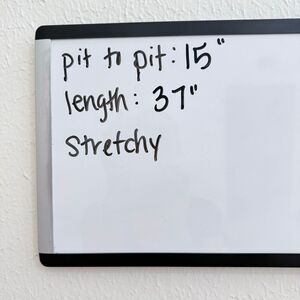 pit to pit: 15"
length: 37"
stretchy